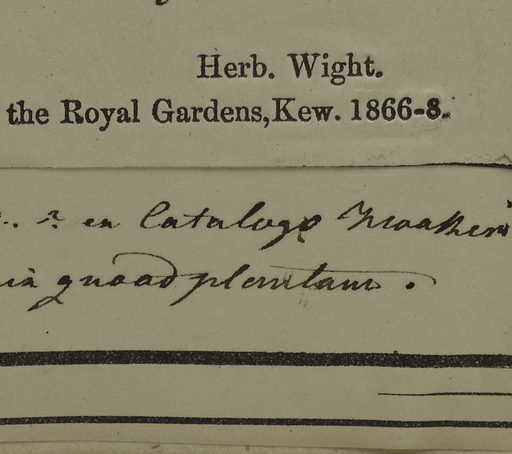 Herb. Wight.
the Royal Gardens, Kew. 1866-8.
en Catalogo
quoad plantam.